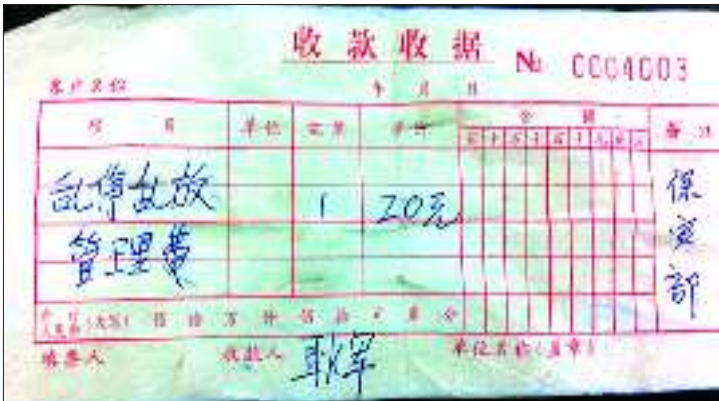 收款收据 № 0004003
客户名称 年 月 日
项 目 单位 数量 单价 金额 备注
乱停乱放 1 20元 保安部
管理费
合计人民币(大写) 佰 拾 万 仟 佰 拾 元 角 分
填票人 收款人 单位名称(盖章)